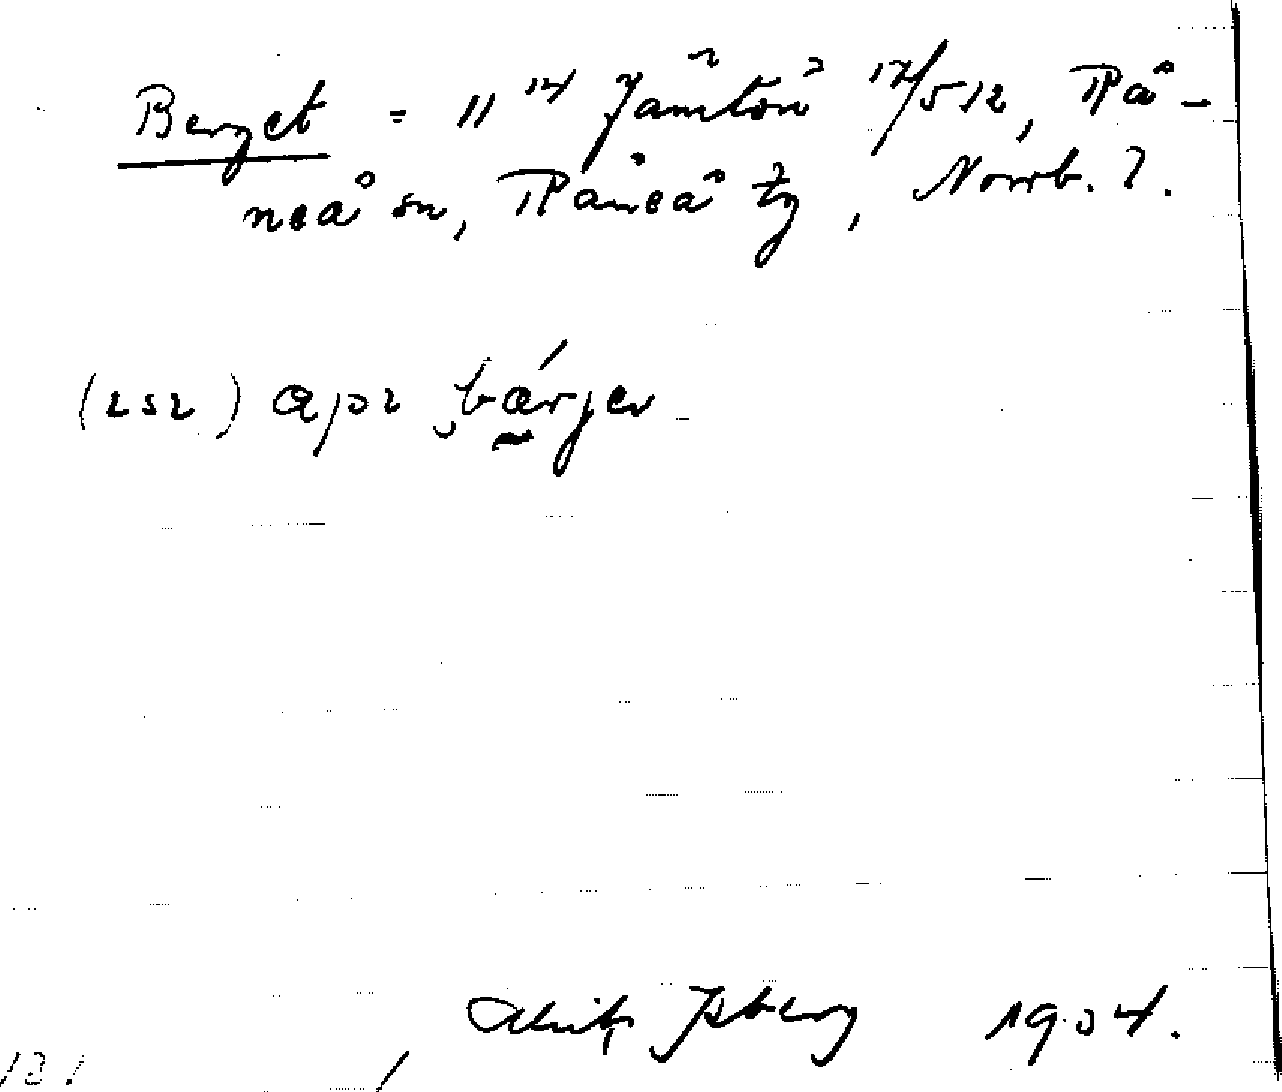 Berget = 11 14 Jämtön 17/512, Rå-
neå sn, Råneå tg, Norrb. l.
(252) apr bärjer
Isberg 1904.